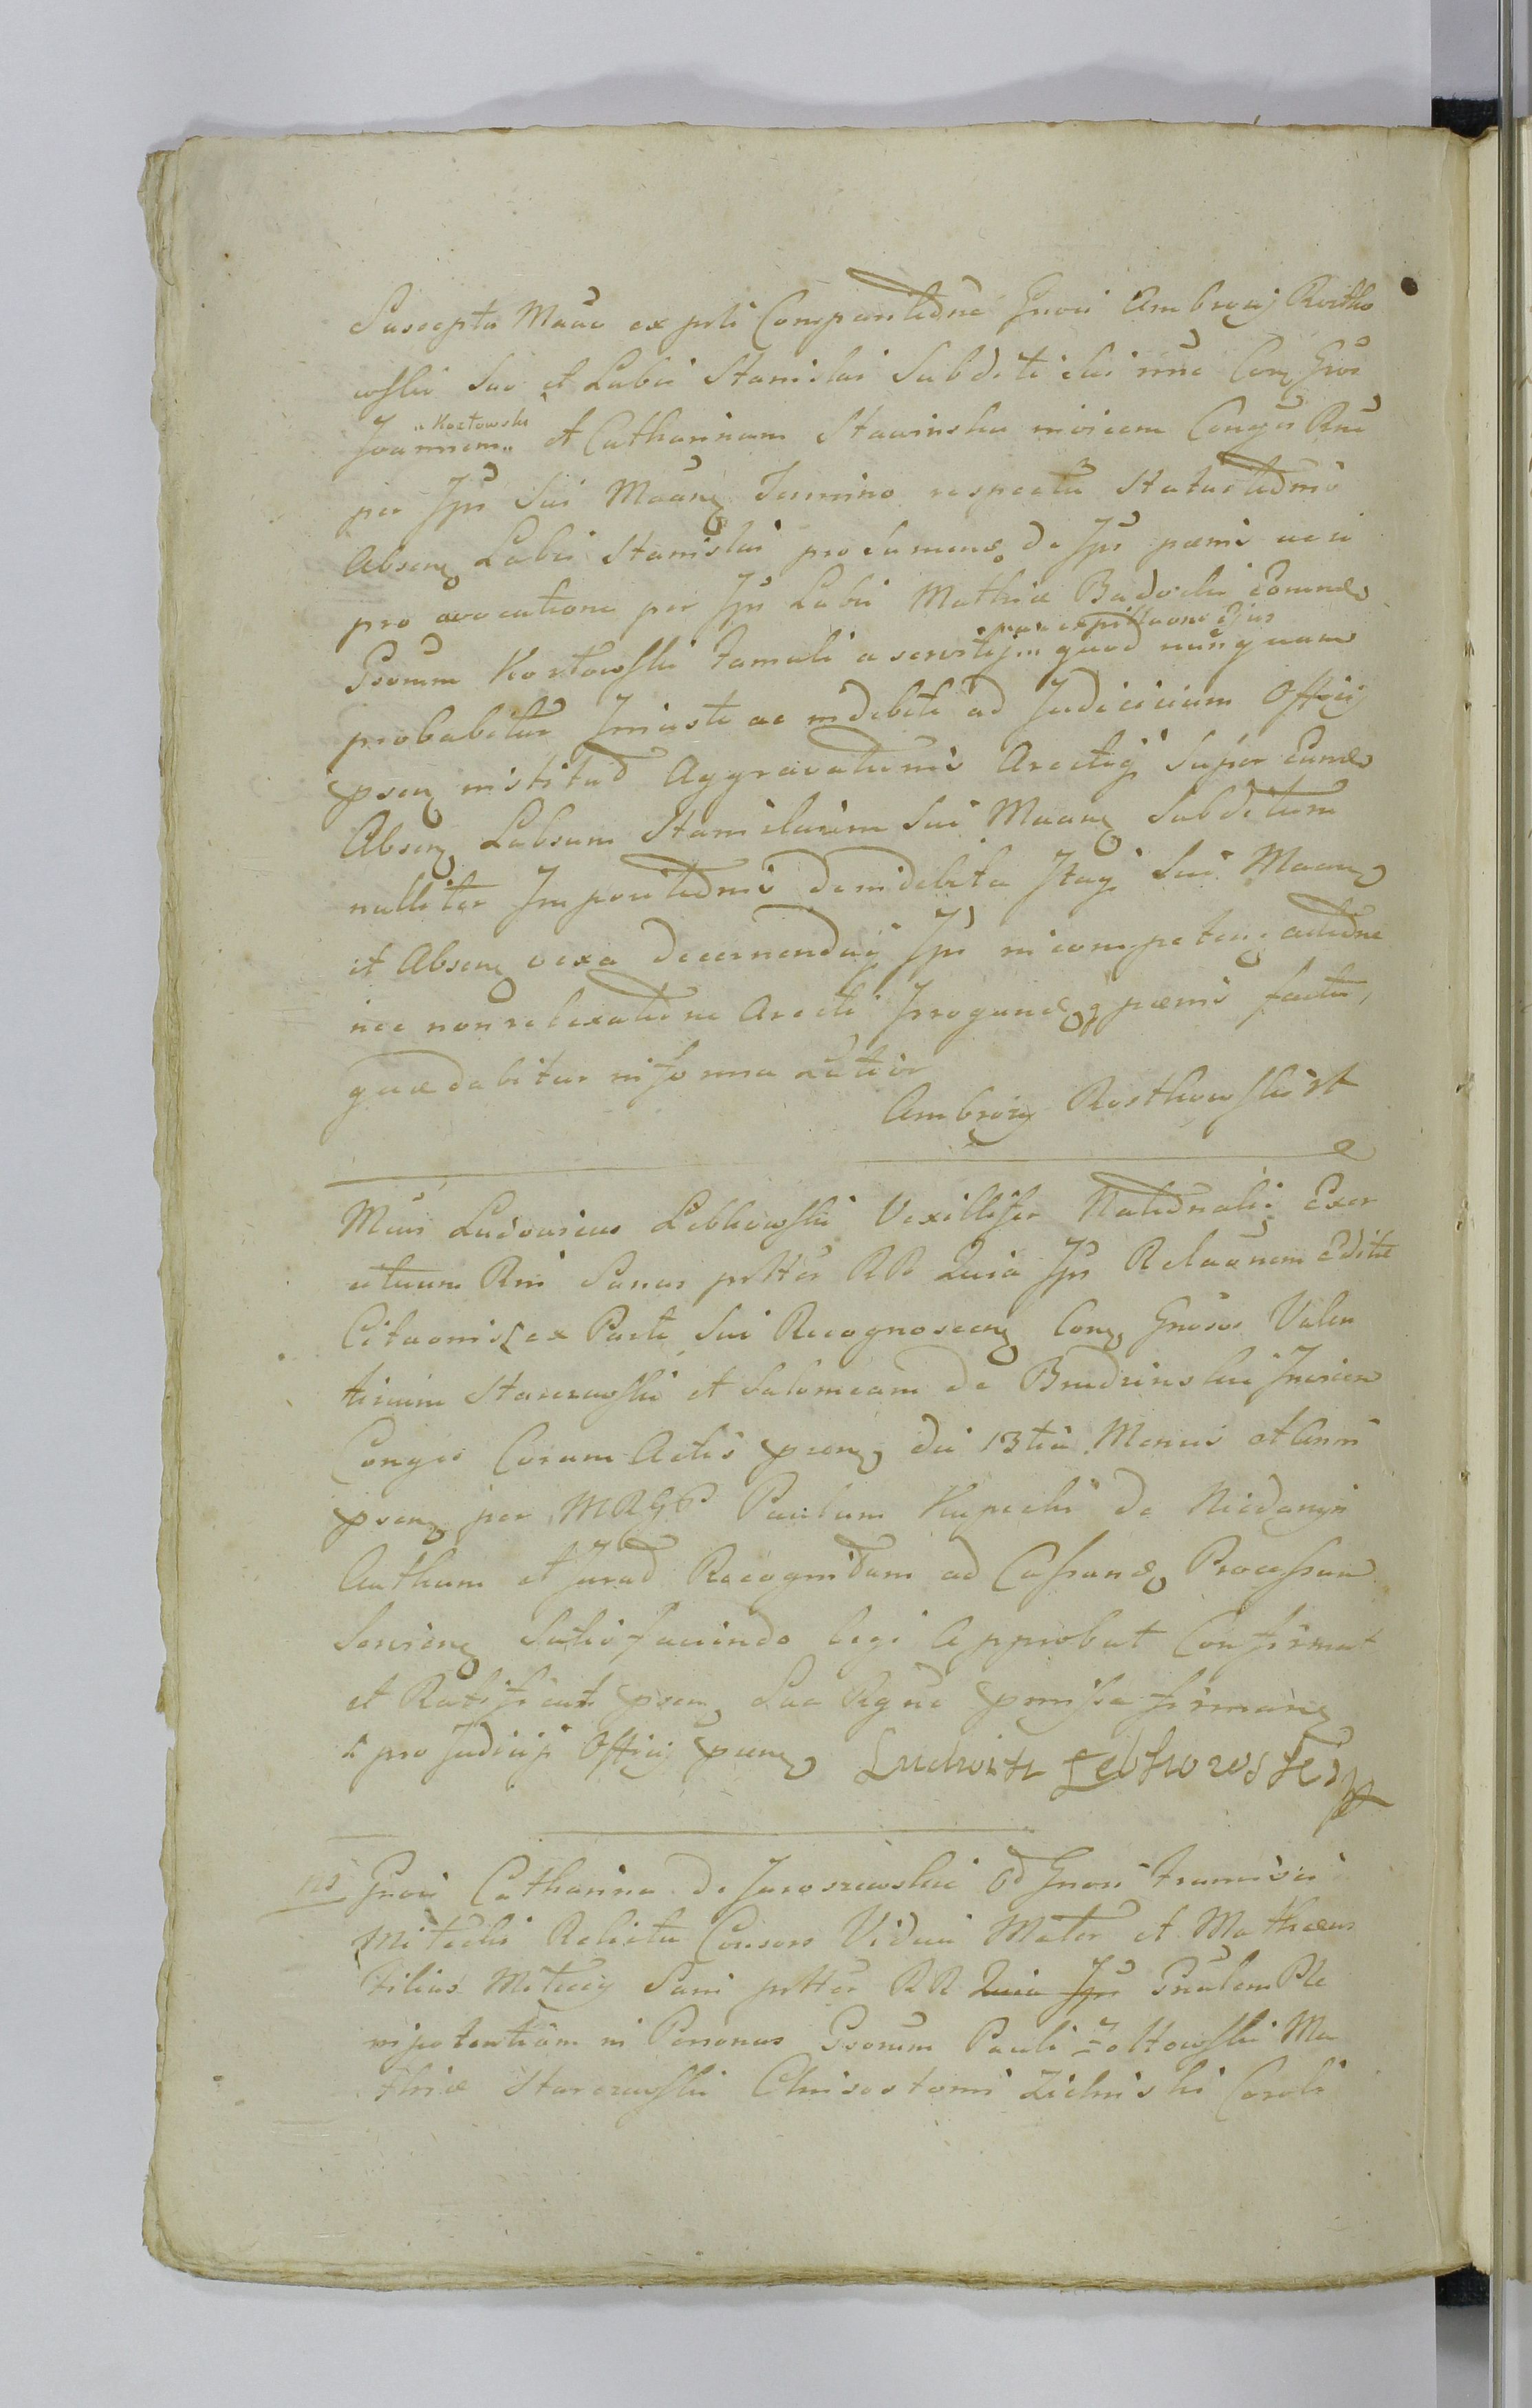 Suscepta Manc ex pcti Comparitione Gnosi Ambrozij Rostko
wski suo et Labii Stanislai Subditi sui nne Con Gnos
Joannem "Kozłowski" et Catharinam Stawinska invicem Conges Rne
per Ips sui Maanz Termino respectu Statuitionis
Absenz Labii Stanislai pro sumens de Ips poenis ac
pro avocatione per Ips Labii Mathiae Badocki Eorund
Gsorum Kozłowski famuli a servitij quod nunquam
probabitur Injuste ac indebite ad Judicium Officij
psen institut Aggravationis Arestij super Eund
Absenz Labsum Stanislaum sui Maanz Subditum
nulliter Impositionis de indebita Itaq sui Maanz
et Absenz vexa decernendaq Ips incompetenz actione
nec non relaxatione Aresti Irrogand poenis facta,
quae dabitur in forma Latior
Ambroży Rostkowski mp
Mcus Ludovicus Lebkowski Vexillifer Nationalis Exer
cituum Rni Sanus pttes RR Quia Ips Relaonem Editae
Citaonis ex Parte sui Recognoscenz Conz Gnosos Valen
tinum Starczewski et Salomeam de Brudzinskie Invicem
Conges Coram Actis psenz die 13tia Mensis et Anni
psenz per MRGP Paulum Kupecki de Niedanyn
Authum et Jurad Recognitam ad Cassand Processum
Servienz Satisfaciendo legi Approbat Confirmat
et Ratificat psenz Sua Rgne pmissa firmanz
pro Judicij Officij psenz Ludwik Lebkowski mp
Gnosi Catharina de Jaroszewskie od Gnosi Francisci
Miteckis Relicta Consors Vidua Mater et Mathaeus
Filius Mitecy Sani pttes RR Quia Ips Gnalem Ple
nipotentiam in Personas Gsorum Pauli Zołtowski Ma
thiae Starczewski Chrisostomi Zielinski Caroli